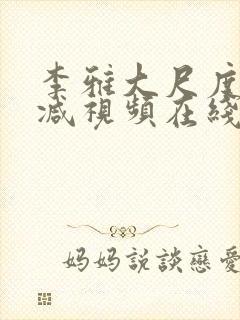 李雅大尺度
减視頻在綫
妈妈説談戀愛